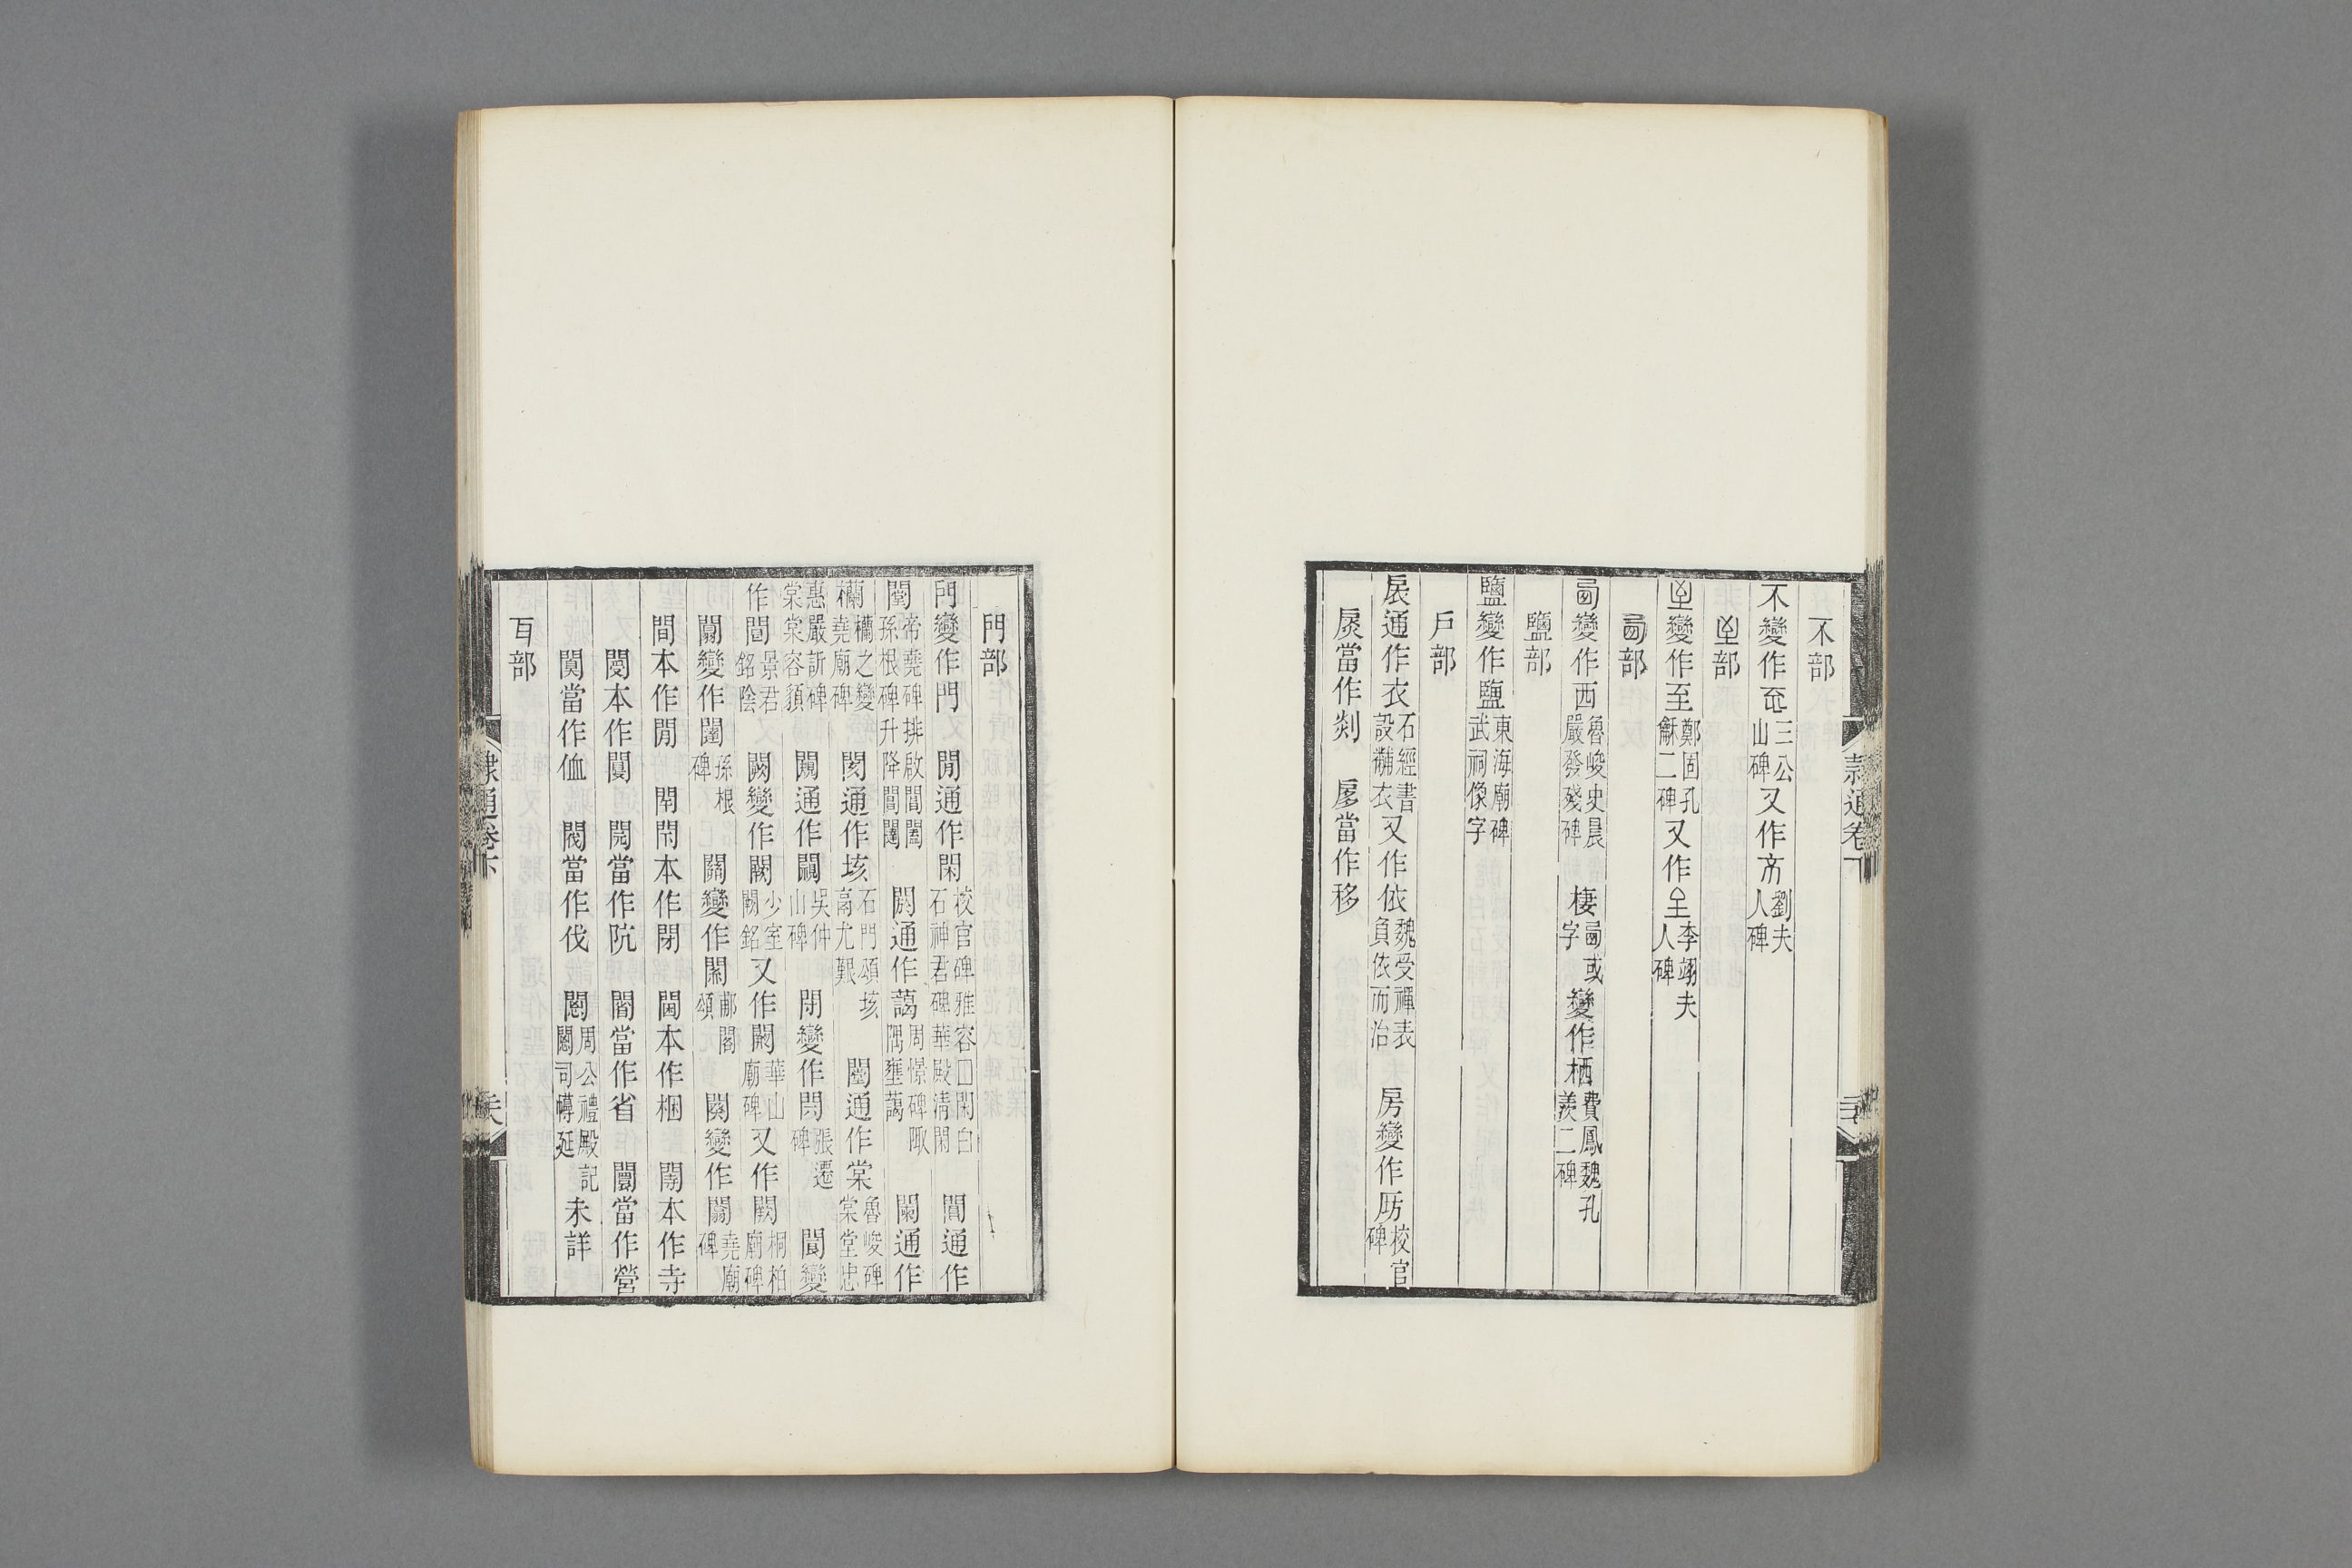 不部
不變作𠀚三公山碑又作𠀘劉夫人碑
𦤳部
𦤳變作至鄭固孔龢二碑又作𡉀李翊夫人碑
㢴部
㢴變作西魯峻史晨嚴發殘碑 棲㢴字或變作栖費鳳魏孔羨二碑
鹽部
鹽變作塩東海廟碑武祠像字
戶部
扆通作衣石經書設黼衣又作依魏受禪表負依而治 房變作𢨷校官碑
扊當作剡 扅當作移
隸通卷下
門部
門變作門 閒通作閑校官碑雅容□閑白石神君碑華殿清閑 閶通作
閣帝堯碑排啟閶闔孫根碑升降閶闔 閼通作藹周憬碑陬隅壅藹 闌通作
欄欗之變堯廟碑 閡通作垓石門頌垓鬲尤艱 闛通作棠魯峻碑棠堂忠
惠嚴訢碑棠棠容貌 闚通作闞吳仲山碑 閉變作閇張遷碑 閽變
作閽景君銘陰 闕變作闕少室闕銘又作闕華山廟碑又作闕桐柏廟碑
闈變作闈孫根碑 闊變作闊郙閣頌 闕變作關堯廟碑
間本作閒 閈閉本作閉 閫本作梱 闈本作寺
閿本作䦧 閌當作阬 閽當作省 闤當作營
闃當作侐 閥當作伐 闟周公禮殿記闟司幬延未詳
耳部
隸通卷下